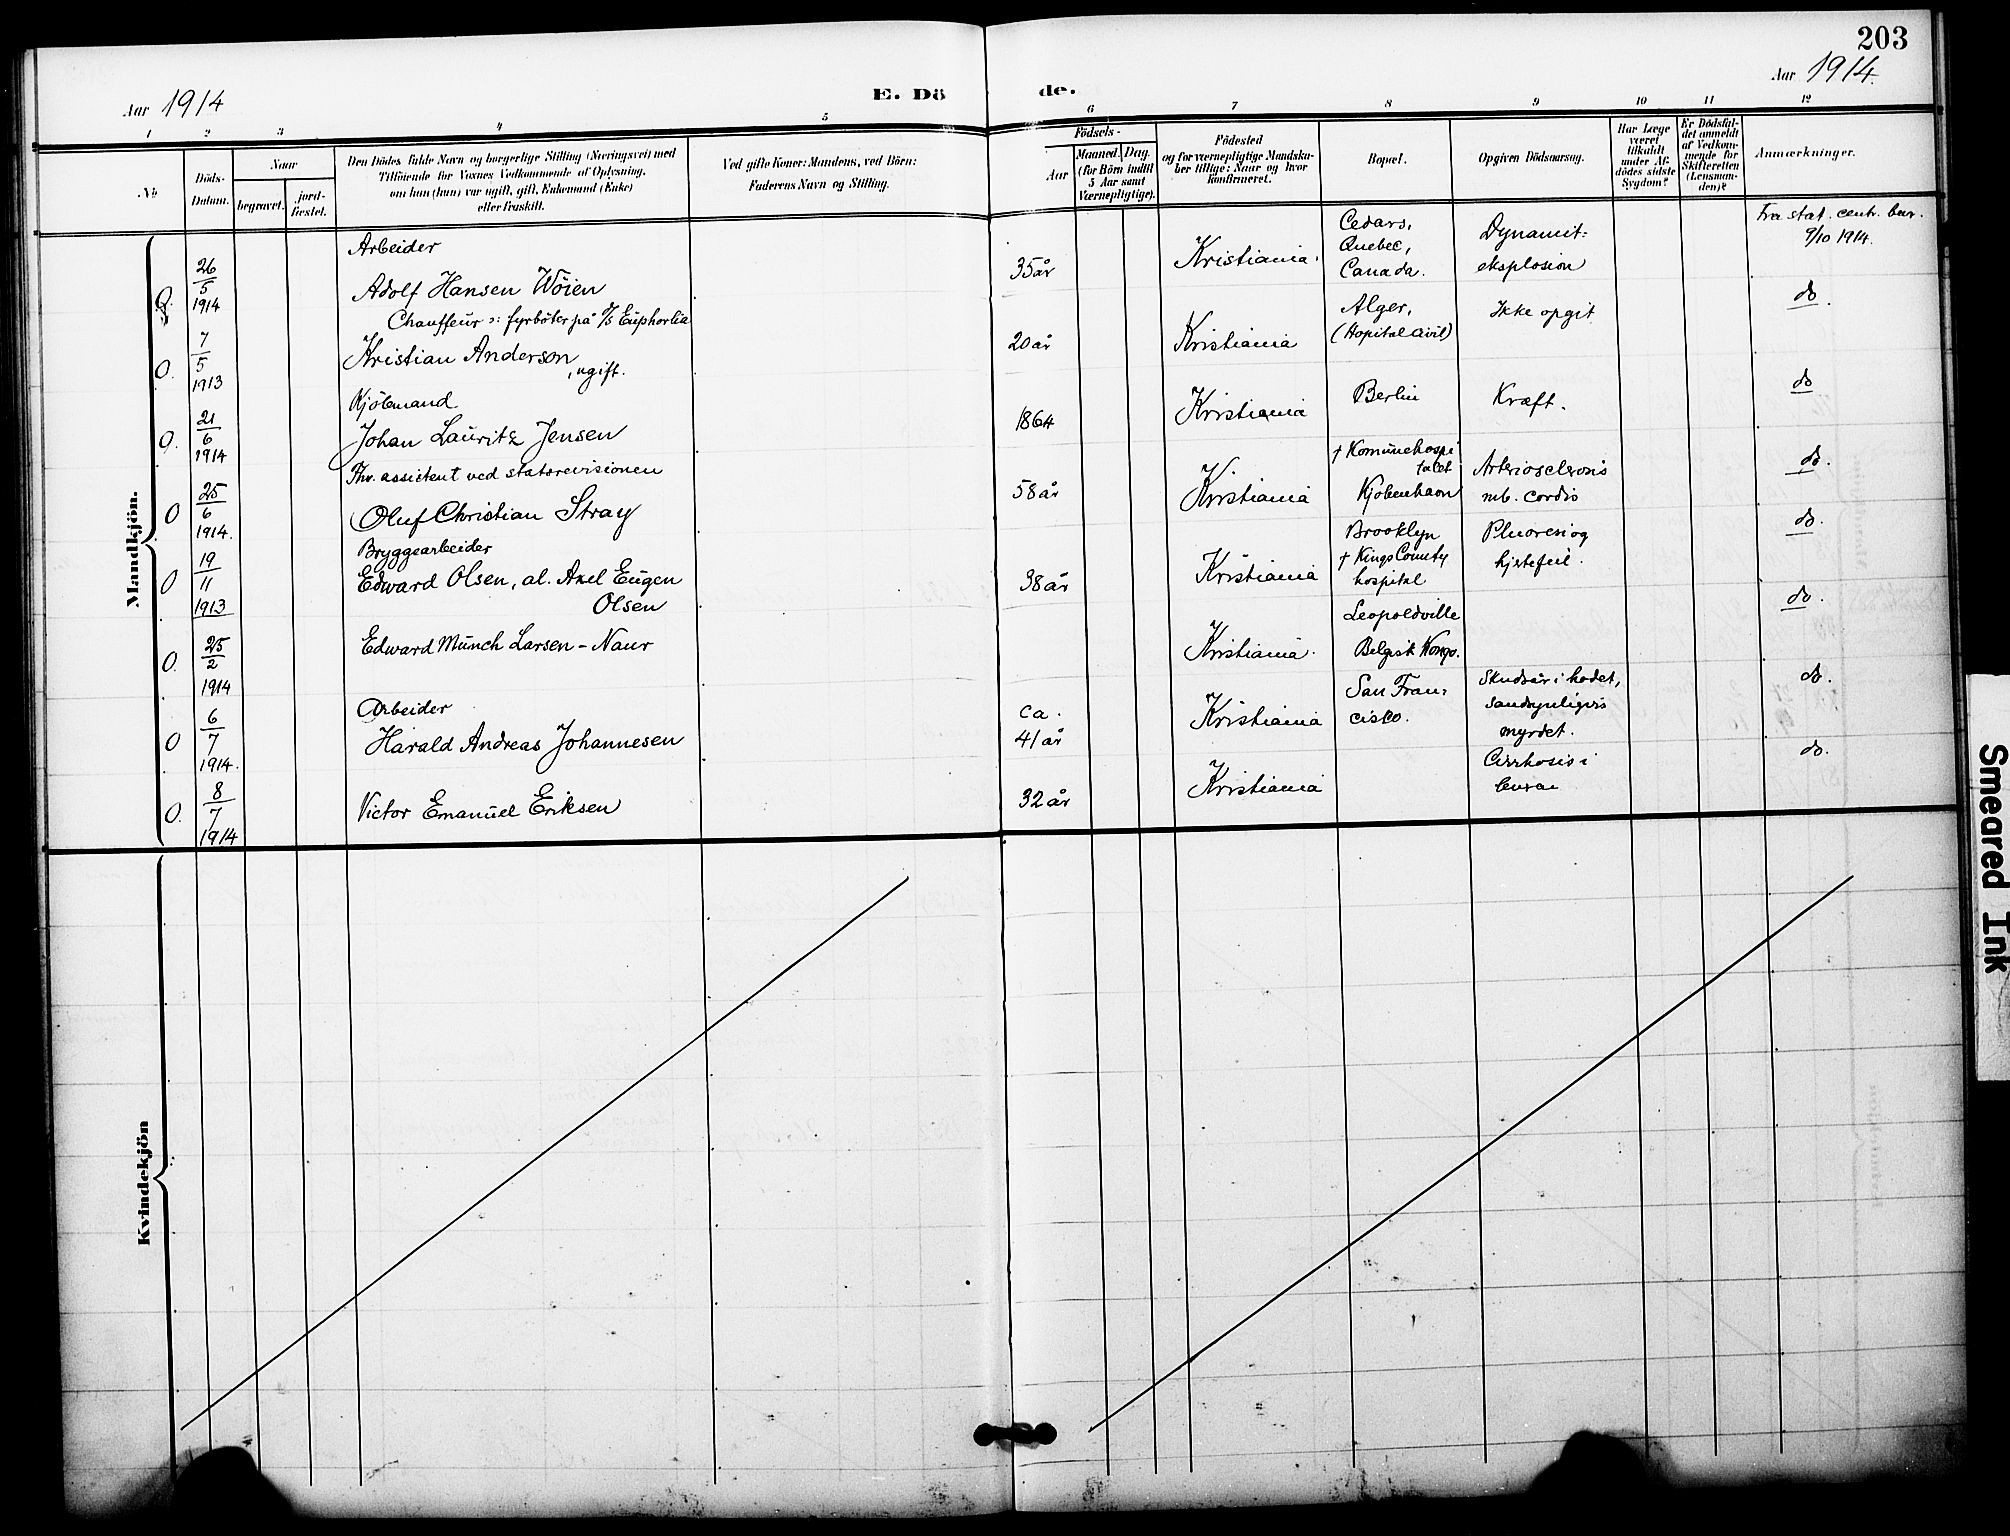 203
Aar 1914
E. Dö
de.
Aar 1914.
1 2 3 4 5 6 7 8 9 10 11 12
No
Döds-
Datum.
Naar
begravet.
jord-
fæstet.
Den Dödes fulde Navn og borgerlige Stilling (Næringsvei) med
Tilföiende for Voxnes Vedkommende af Oplysning,
om han (hun) var ugift, gift, Enkemand (Enke)
eller fraskilt.
Ved gifte Koner: Mandens, ved Börn:
Faderens Navn og Stilling.
Födsels-
Aar
Maaned. Dag.
(for Börn indtil
5 Aar samt
Værnepligtige).
Födested
og for værnepligtige Mandsku-
ber tillige: Naar og hvor
konfirmeret.
Bopæl.
Opgiven Dödsaarsag.
Har Læge
været
tilkaldt
under Af-
dödes sidste
Sygdom?
Er Dödsfal-
det anmeldt
af Vedkom-
mende for
Skifteretten
(Lensman-
den)?
Anmærkninger.
Mandkjön.
O.
26
5
1914
Arbeider
Adolf Hansen Wöien
35 år
Kristiania.
Cedars,
Quebec,
Canada.
Dynamit-
eksplosion
Fra stat. centr. bur.
9/10 1914.
O.
7
5
1913
Chauffeur ɔ: fyrböter på T/S Euphorlia
Kristian Anderson
, ugift.
20 år
Kristiania
Alger,
(Hopital civil)
Ikke opgit
do.
O.
21
6
1914
Kjöbmand
Johan Lauritz Jensen
1864
Kristiania
Berlin
Kræft.
do
O
25
6
1914.
Fhv. assistent ved statsrevisionen
Oluf Christian Stray
58 år
Kristiania
† Komunehospi
talet
Kjöbenhavn
Arteriosclerosis
mb. cordis
do.
O
19
11
1913
Bryggearbeider
Edward Olsen, al. Axel Eugen
Olsen
38 år
Kristiania
Brooklyn
† Kings County
hospital
Pluoresi og
hjertefeil.
do.
O.
25
2
1914
Edward Munch Larsen - Naur
Kristiania.
Leopoldville
Belgisk Kongo.
do.
O
6
7
1914.
Arbeider
Harald Andreas Johannesen
ca.
41 år
Kristiania
San Fran-
cisko.
Skudsår i hodet,
sandsynligvis
myrdet.
do.
O.
8
7
1914
Victor Emanuel Eriksen
32 år
Kristiania
Cirrhosis i
leveren
do.
Kvindekjön
Smeared Ink